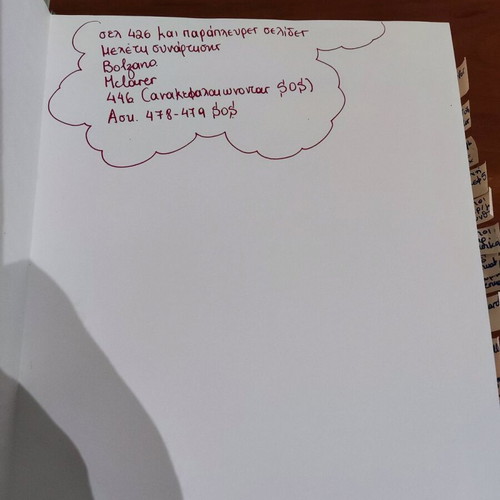 σελ 426 και παράπλευρες σελίδες
Μελέτη συνάρτησης
Bolzano
Mclarer
446 (ανακεφαλαιώνοντας $OS$)
Ασκ. 478-479 $OS$